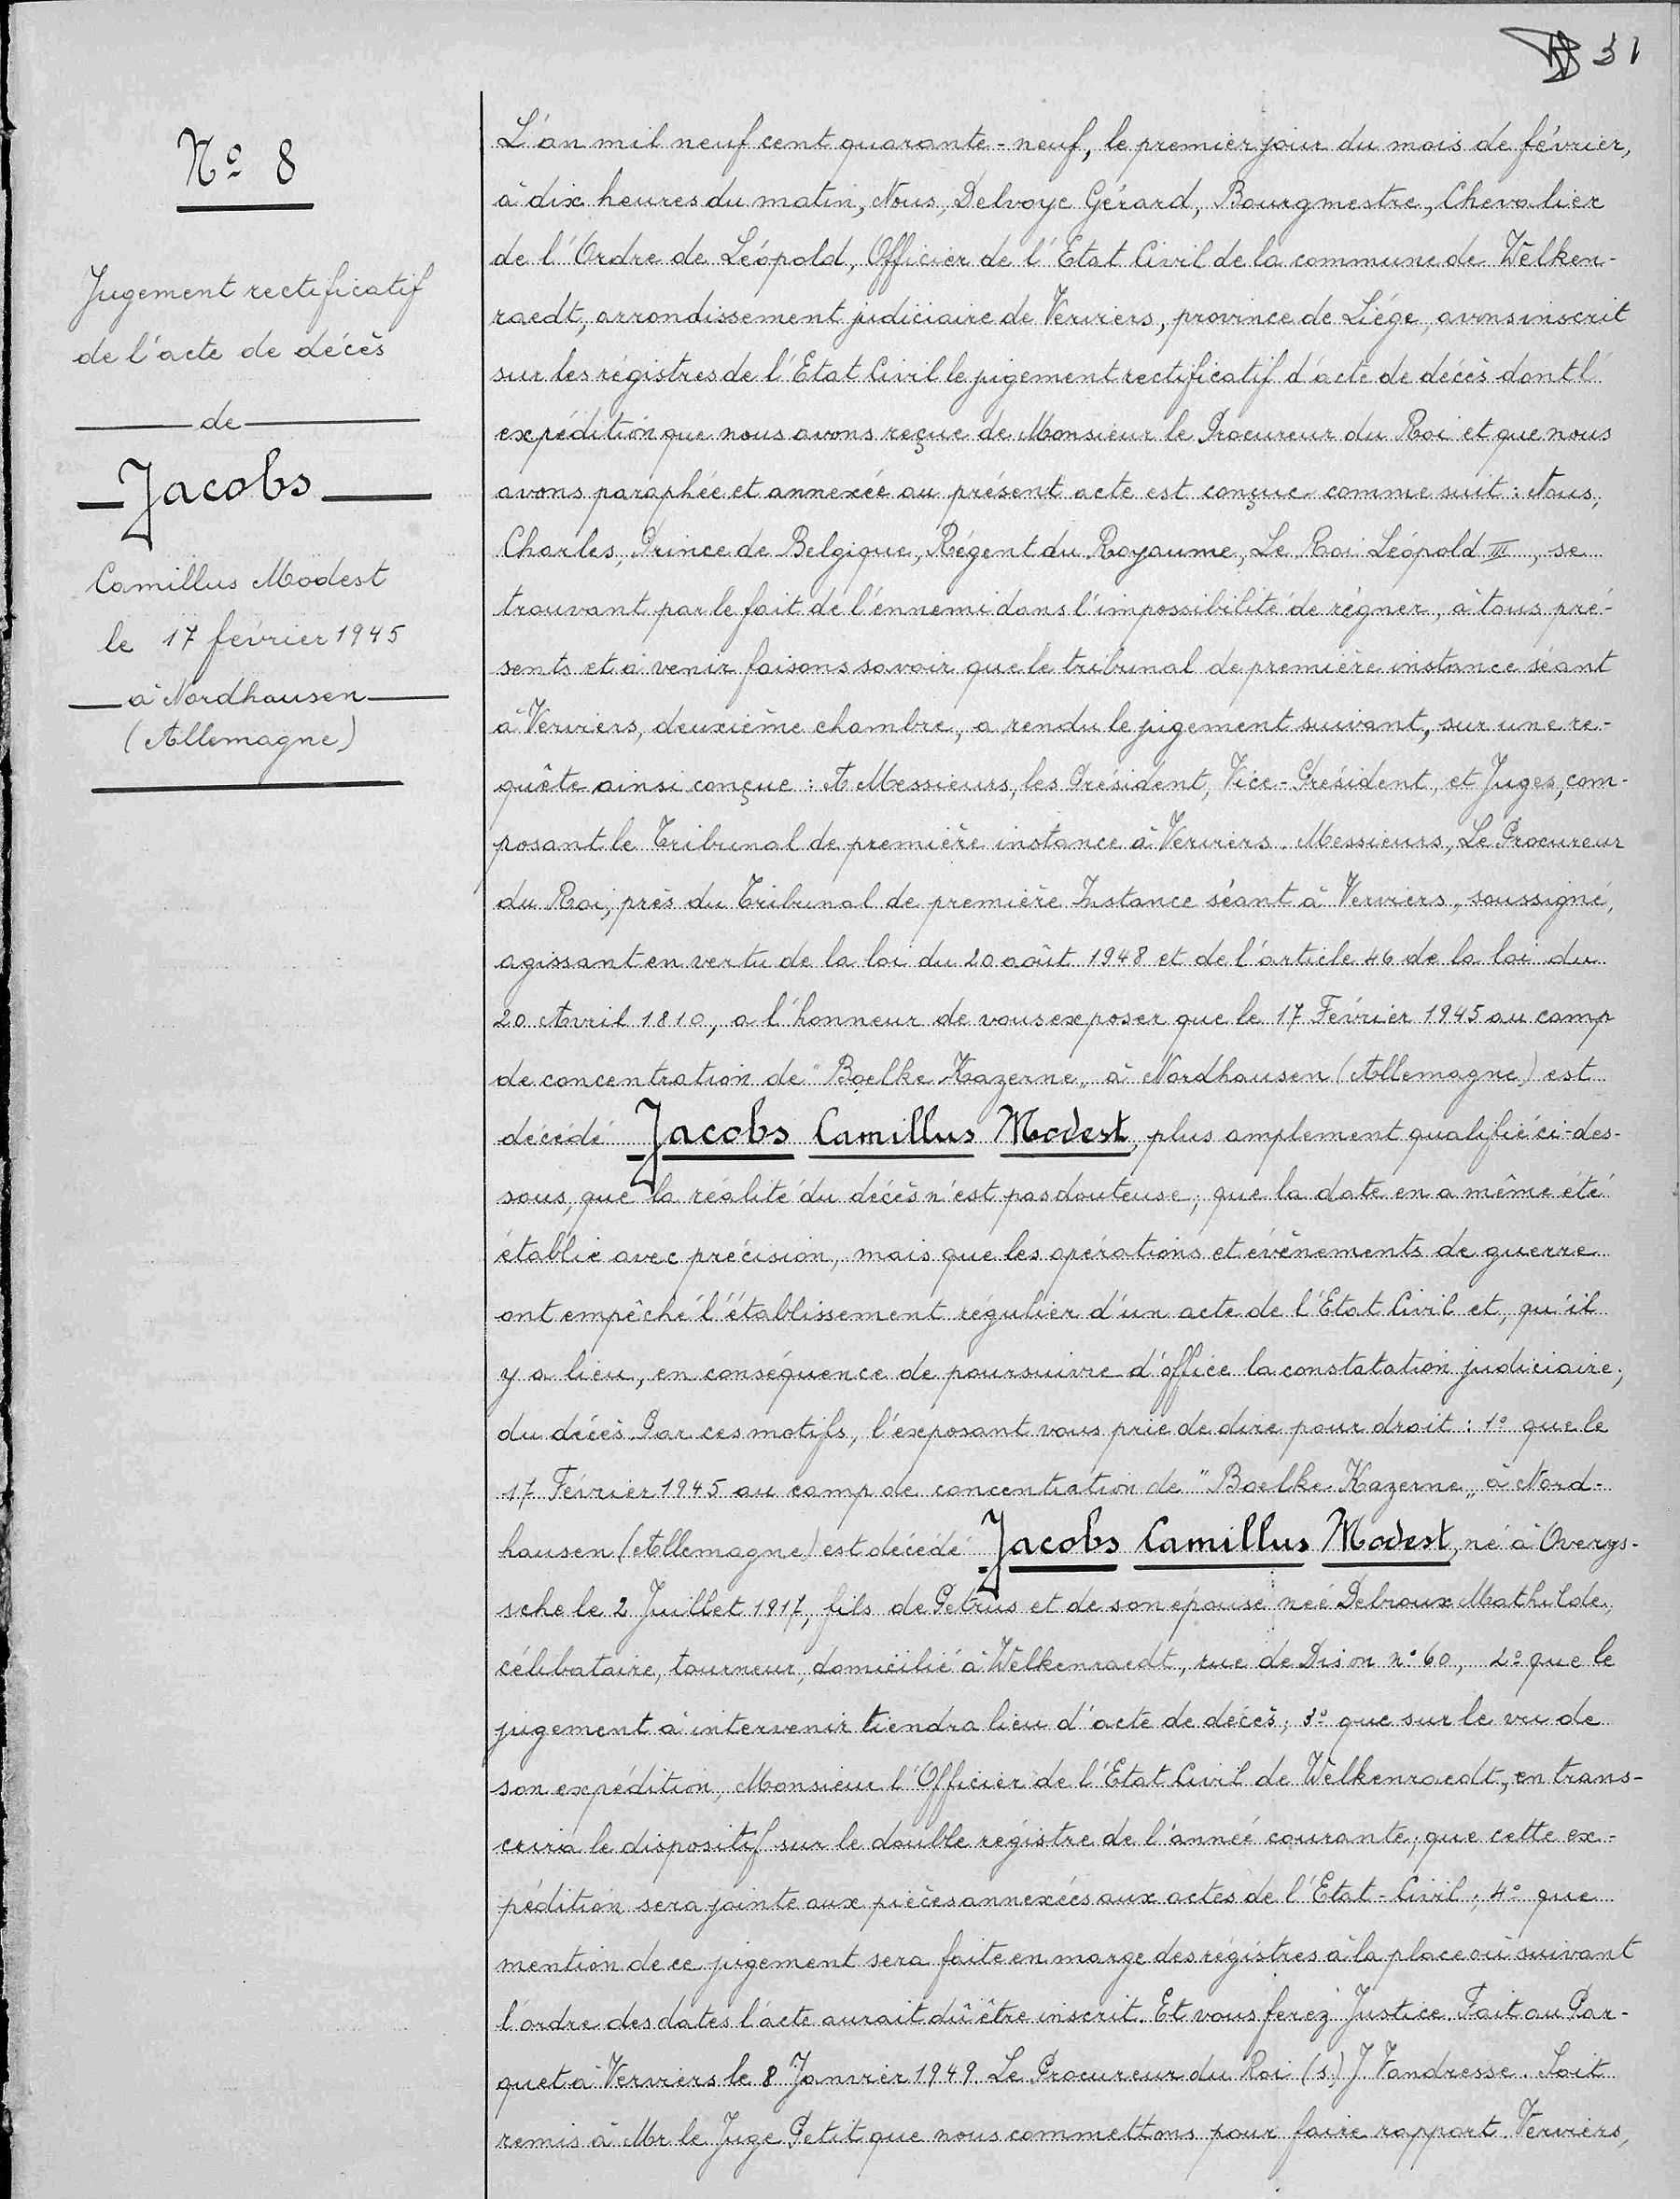 31
Nº 8
Jugement rectificatif
de l'acte de décès
de
Jacobs
Camillus Modest
le 17 février 1945
à Nordhausen
(Allemagne)
L'an mil neuf cent quarante-neuf, le premier jour du mois de février,
à dix heures du matin, Nous, Delvoye Gérard, Bourgmestre, Chevalier
de l'Ordre de Léopold, Officier de l'Etat Civil de la commune de Welken-
raedt, arrondissement judiciaire de Verviers, province de Liége, avons inscrit
sur les régistres de l'Etat Civil le jugement rectificatif d'acte de décès dont l'
expédition que nous avons reçue de Monsieur le Procureur du Roi et que nous
avons paraphée et annexée au présent acte est conçue comme suit : Nous,
Charles, Prince de Belgique, Régent du Royaume, Le Roi Léopold III, se
trouvant par le fait de l'ennemi dans l'impossibilité de régner, à tous pré-
sents et à venir faisons savoir que le tribunal de première instance séant
à Verviers, deuxième chambre, a rendu le jugement suivant, sur une re-
quête ainsi conçue : A Messieurs, les Président, Vice-Président, et Juges, com-
posant le Tribunal de première instance à Verviers. Messieurs, Le Procureur
du Roi, près du Tribunal de première Instance séant à Verviers, soussigné,
agissant en vertu de la loi du 20 août 1948 et de l'article 46 de la loi du
20 Avril 1810, a l'honneur de vous exposer que le 17 Février 1945 au camp
de concentration de "Boelke Kazerne" à Nordhausen (Allemagne) est
décédé Jacobs Camillus Modest, plus amplement qualifié ci-des-
sous, que la réalité du décès n'est pas douteuse; que la date en a même été
établie avec précision, mais que les opérations et évènements de guerre
ont empêché l'établissement régulier d'un acte de l'Etat Civil et, qu'il
y a lieu, en conséquence de poursuivre d'office la constatation judiciaire;
du décès. Par ces motifs, l'exposant vous prie de dire pour droit : 1º que le
17 Février 1945 au camp de concentration de "Boelke Kazerne" à Nord-
hausen (Allemagne) est décédé Jacobs Camillus Modest, né à Overys-
sche le 2 Juillet 1917, fils de Petrus et de son épouse née Debroux Mathilde,
célibataire, tourneur, domicilié à Welkenraedt, rue de Dison nº 60, 2º que le
jugement à intervenir tiendra lieu d'acte de décès; 3º que sur le vu de
son expédition, Monsieur l'Officier de l'Etat Civil de Welkenraedt, en trans-
crira le dispositif sur le double régistre de l'année courante; que cette ex-
pédition sera jointe aux pièces annexées aux actes de l'Etat-Civil; 4º que
mention de ce jugement sera faite en marge des régistres à la place où suivant
l'ordre des dates l'acte aurait dû être inscrit. Et vous ferez Justice. Fait au Par-
quet à Verviers le 8 Janvier 1949. Le Procureur du Roi (s) J. Vandresse. Soit
remis à Mr le Juge Petit que nous commettons pour faire rapport. Verviers,